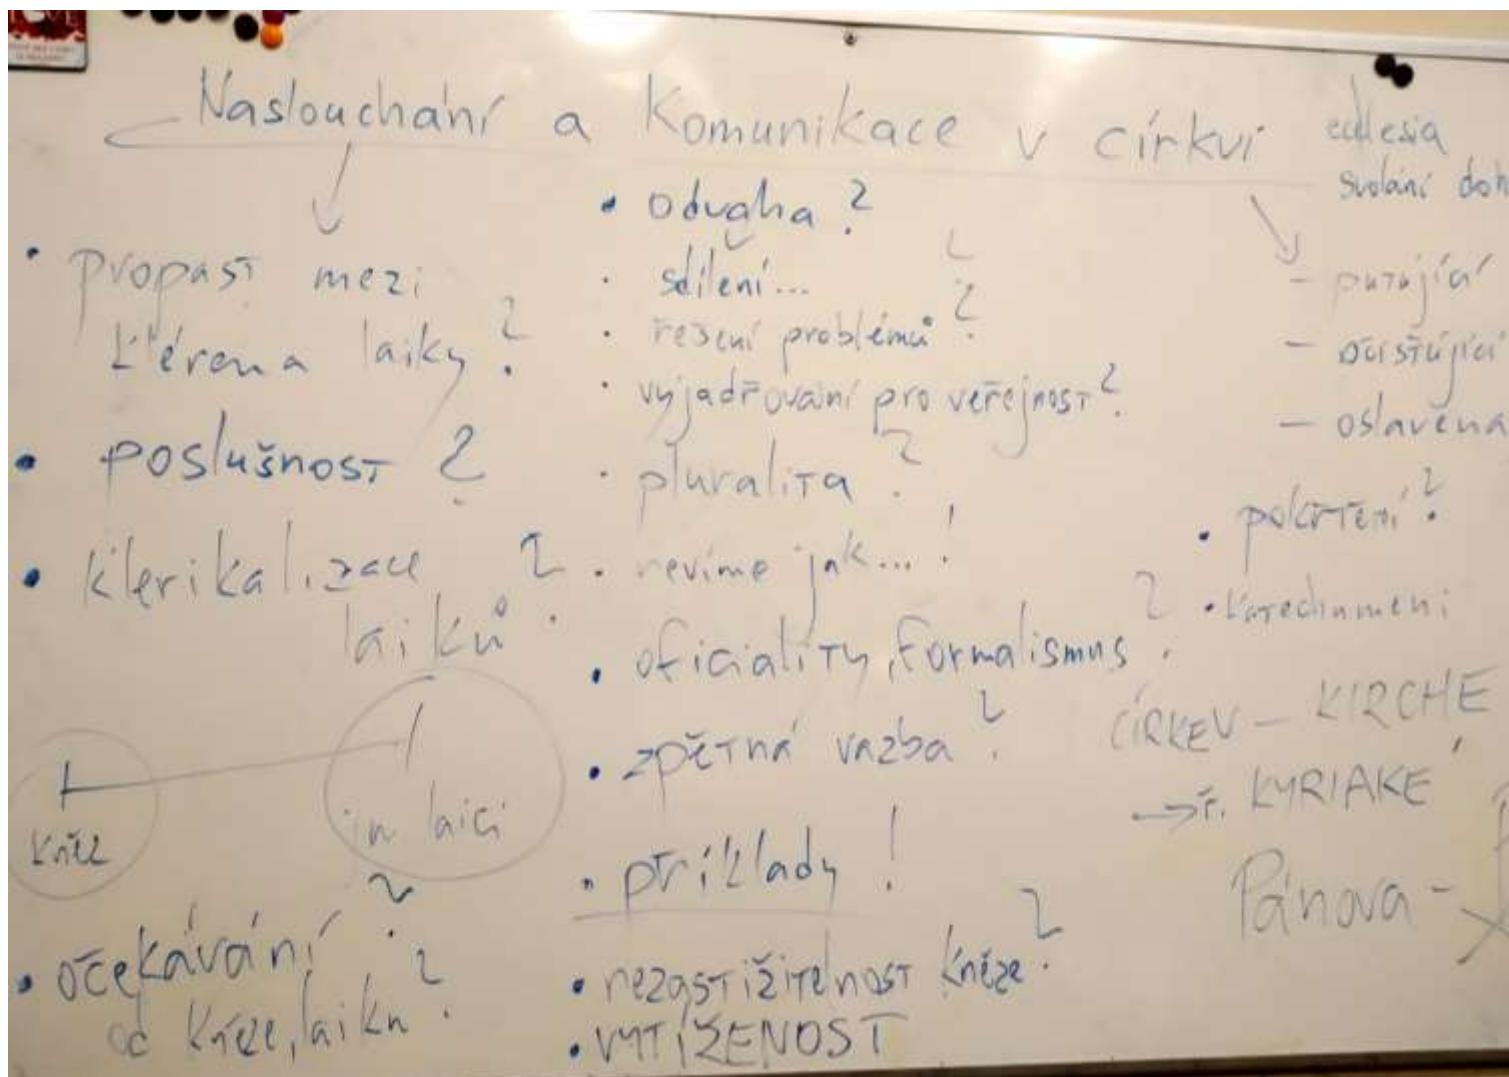 Naslouchání a Komunikace v církvi
• propast mezi
klérem a laiky?
• poslušnost ?
• klerikalizace
laiků ?
kněz
laici
• očekávání ?
od kněze, laiků ?
• odvaha ?
• sdílení...
• řešení problémů ?
• vyjadřování pro veřejnost ?
• pluralita ?
• nevíme jak... !
• oficiality, formalismus ?
• zpětná vazba ?
• příklady !
• nezastižitelnost kněze ?
• VYTÍŽENOST
ecclesia
svolání doh
– putující
– očišťující
– oslavená
• pokřtění ?
• katechumeni
CÍRKEV – KIRCHE
→ ř. KYRIAKÉ
Pánova –